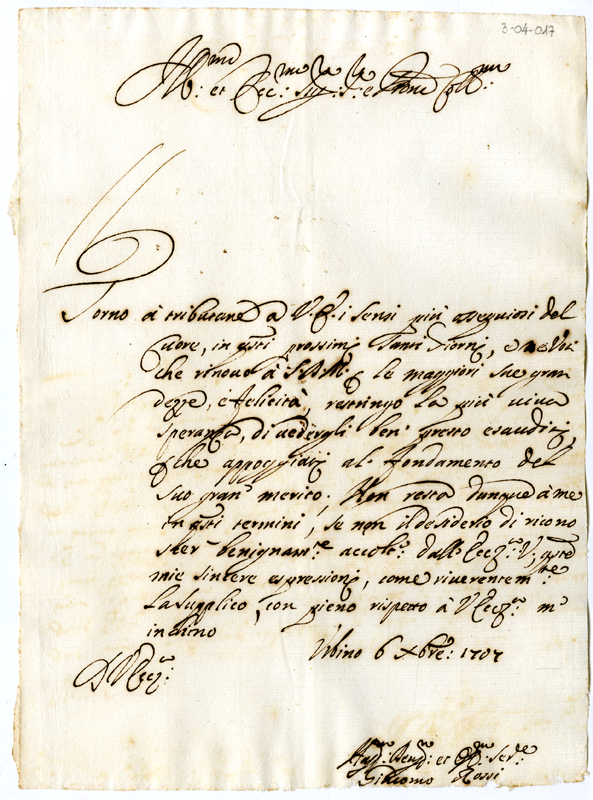 3-04-017
Ill.mo et Ecc.mo Sig.re S.r e P.rone Coll.mo
Torno à tributare a V. E. i sensi più osseguiosi del
Cuore, in q.sti prossimi Santi Giorni, e ne Voti
che rinovo à S. D. M. p le maggiori sue gran
dezze, e felicità, restringo la più viva
speranza, di vedergli ben presto esauditi,
p che appoggiati al fondamento del
suo gran merito. Non resta dunque à me
in q.sti termini, se non il desiderio di ricono
scer benignam.te accolte dall' Ecc.za V. queste
mie sincere espressioni, come riverentem.te
La supplico, con pieno rispetto à V Ecc.za m'
inchino
Urbino 6 Xbre: 1707
D V Ecc.za
Giacomo Rossi